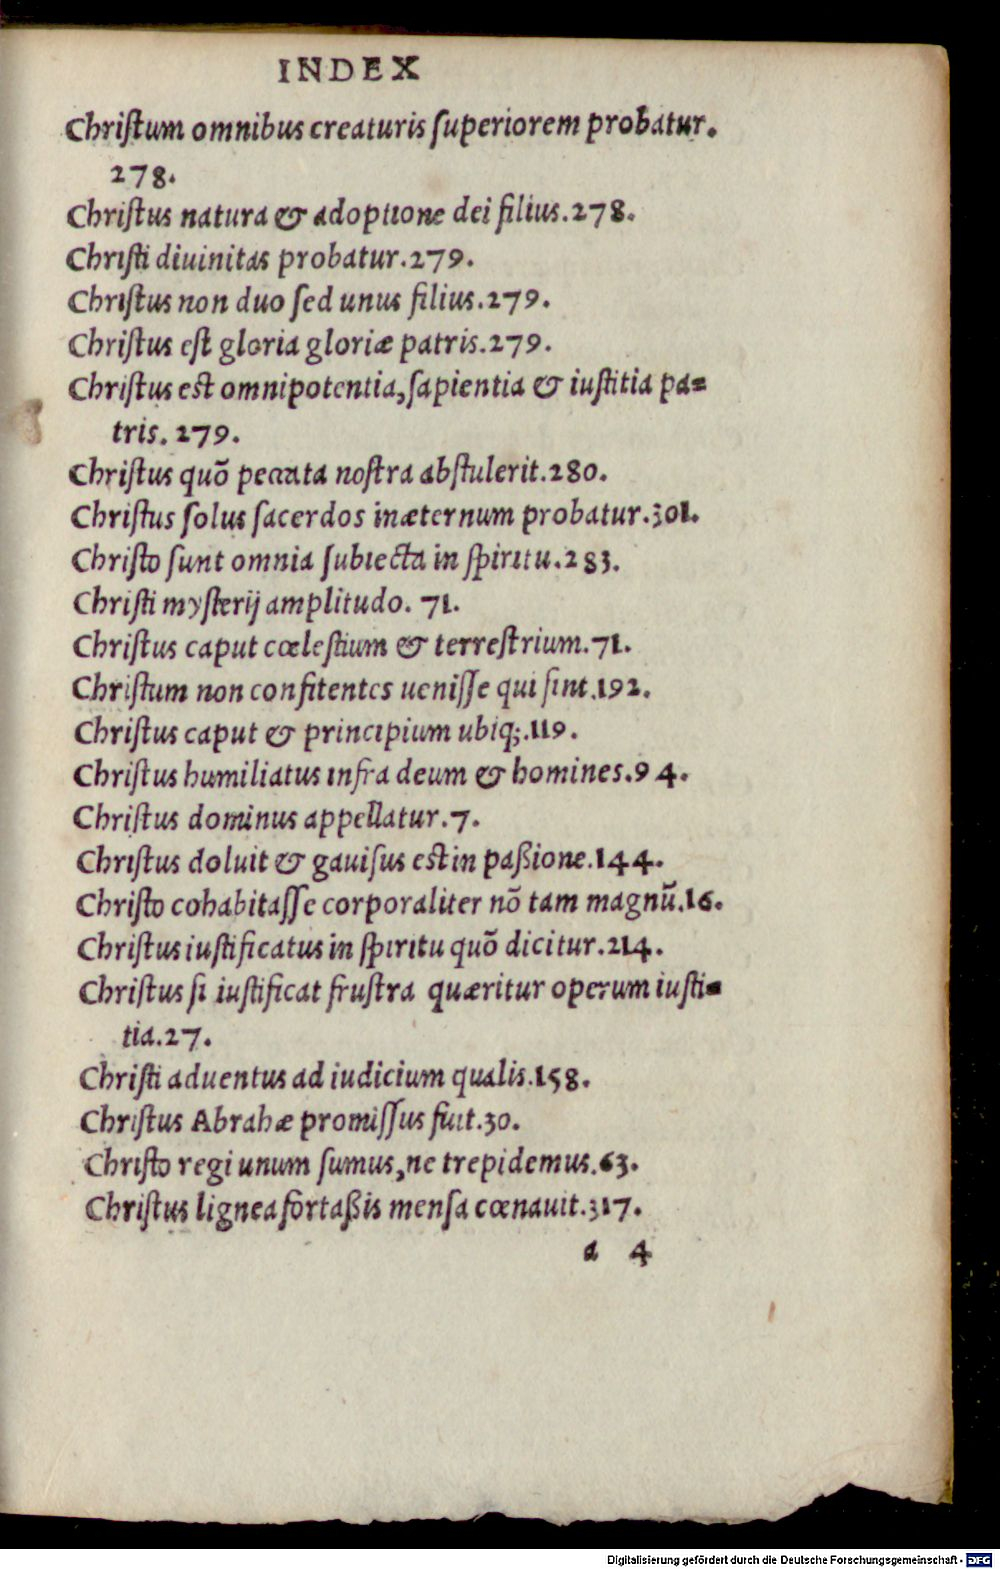 INDEX
Chriſtum omnibus creaturis ſuperiorem probatur.
278.
Chriſtus natura & adoptione dei filius.278.
Chriſti diuinitas probatur.279.
Chriſtus non duo ſed unus filius.279.
Chriſtus eſt gloria gloriæ patris.279.
Chriſtus est omnipotentia,ſapientia & iuſtitia pa=
tris. 279.
Chriſtus quõ peccata noſtra abſtulerit.280.
Chriſtus ſolus ſacerdos inæternum probatur.301.
Chriſto ſunt omnia ſubiecta in ſpiritu.283.
Chriſti myſterij amplitudo. 71.
Chriſtus caput cœleſtium & terreſtrium.71.
Chriſtum non confitentes ueniſſe qui ſint.192.
Chriſtus caput & principium ubiq;.119.
Chriſtus humiliatus infra deum & homines.94.
Chriſtus dominus appellatur.7.
Chriſtus doluit & gauiſus est in paßione.144.
Chriſto cohabitaſſe corporaliter nõ tam magnũ.16.
Chriſtus iuſtificatus in ſpiritu quõ dicitur.214.
Chriſtus ſi iuſtificat fruſtra quæritur operum iuſti=
tia.27.
Chriſti aduentus ad iudicium qualis.158.
Chriſtus Abrahæ promiſſus fuit.30.
Chriſto regi unum ſumus,ne trepidemus.63.
Chriſtus lignea fortaßis menſa cœnauit.317.
a 4
Digitalisierung gefördert durch die Deutsche Forschungsgemeinschaft - DFG